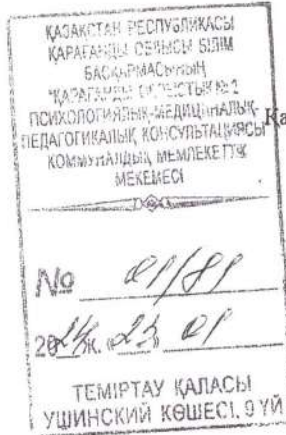 ҚАЗАҚСТАН РЕСПУБЛИКАСЫ
ҚАРАҒАНДЫ ОБЛЫСЫ БІЛІМ
БАСҚАРМАСЫНЫҢ
"ҚАРАҒАНДЫ №2
ПСИХОЛОГИЯЛЫҚ-МЕДИЦИНАЛЫҚ-
ПЕДАГОГИКАЛЫҚ КОНСУЛЬТАЦИЯСЫ
КОММУНАЛДЫҚ МЕМЛЕКЕТТІК
МЕКЕМЕСІ
Ка
№ 01/89
20 ж. «23» 01
ТЕМІРТАУ ҚАЛАСЫ
УШИНСКИЙ КӨШЕСІ, 9 ҮЙ